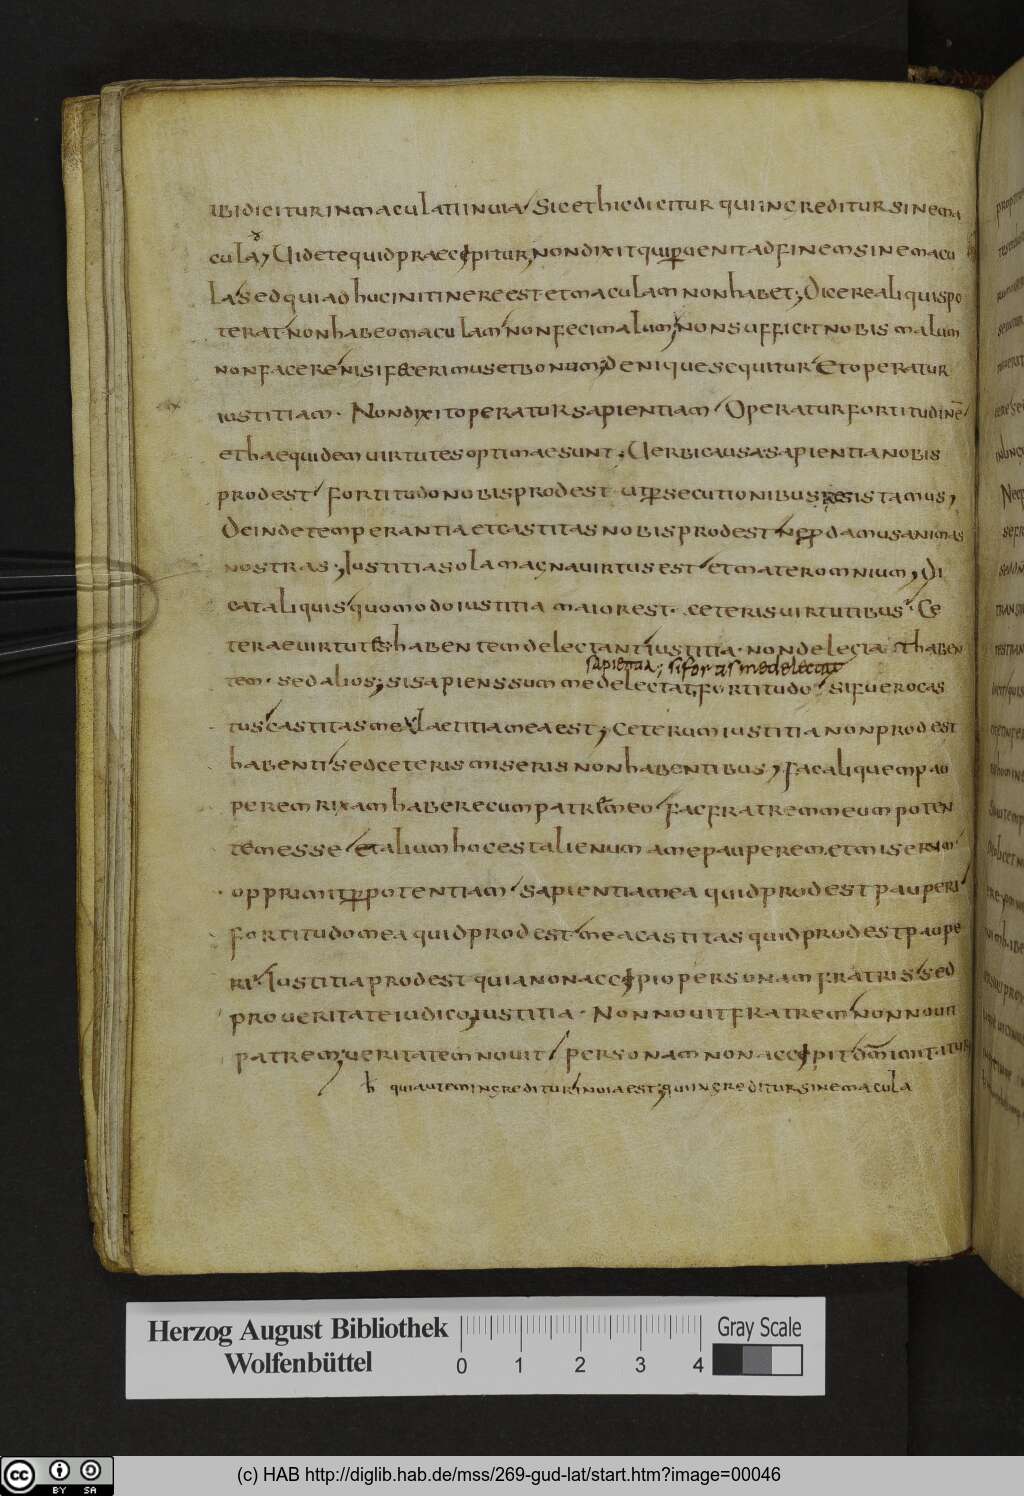 ibi dicitur inmaculati in uia sic et hic dicitur qui ingreditur sine ma
cula, Uidete quid praecepit, non dixit qui peruenit ad finem sine macu
la sed qui adhuc in itinere est et maculam non habet; Dicere aliquis po
terat non habeo maculam non feci malum; non sufficit nobis malum
non facere nisi fecerimus et bonum; denique sequitur Et operatur
iustitiam. Non dixit operatur sapientiam Operatur fortitudinē
et hae quidem uirtutes optimae sunt; Uerbi causa sapientia nobis
prodest fortitudo nobis prodest ut ꝑsecutionibus resistamus,
Deinde temperantia et castitas nobis prodest ne ꝑdamus animas
nostras; Iustitia sola magna uirtus est et mater omnium, Di
cat aliquis quomodo iustitia maior est ceteris uirtutibus. Ce
terae uirtutes habentem delectant iustitia non delectat haben
sapientia; si foras me delectat
tem sed alios; si sapiens sum me delectat, fortitudo si fuero cas
tus castitas mea laetitia mea est; Ceterum iustitia non prodest
habenti sed ceteris miseris non habentibus, fac aliquem pau
perem rixam habere cum patre meo fac fratrem meum poten
tem esse et alium hoc est alienum a me pauperem, et miserum
opprimit ꝑ potentiam sapientia mea quid prodest pauperi
fortitudo mea quid prodest mea castitas quid prodest paupe
ri. Iustitia prodest quia non accipio personam fratris sed
pro ueritate iudico, iustitia. Non nouit fratrem non nouit
patrem; ueritatem nouit personam non accepit dm̄ imitatur
h qui autem ingreditur in uia est; qui ingreditur sine macula
Herzog August Bibliothek
Wolfenbüttel
0 1 2 3 4
Gray Scale
cc BY SA
(c) HAB http://diglib.hab.de/mss/269-gud-lat/start.htm?image=00046